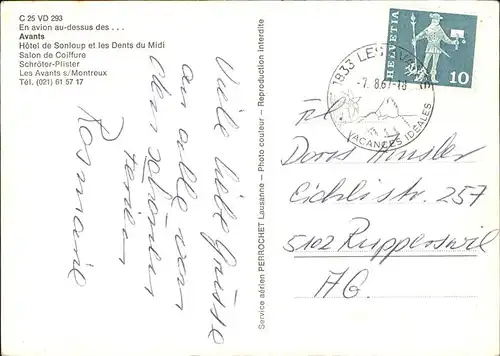 C 25 VD 293
En avion au-dessus des . . .
Avants
Hôtel de Sonloup et les Dents du Midi
Salon de Coiffure
Schröter-Plister
Les Avants s/Montreux
Tél. (021) 61 57 17
Viele liebe Grüsse
an alle von
den schönen
Ferien
Rosmarie
Service aérien PERROCHET Lausanne – Photo couleur – Reproduction Interdite
HELVETIA
10
1833 LES AVANTS
-7. 8.67-18
VACANCES IDÉALES
Frl.
Doris
Eichlistr. 257
5102 Rupperswil
AG.